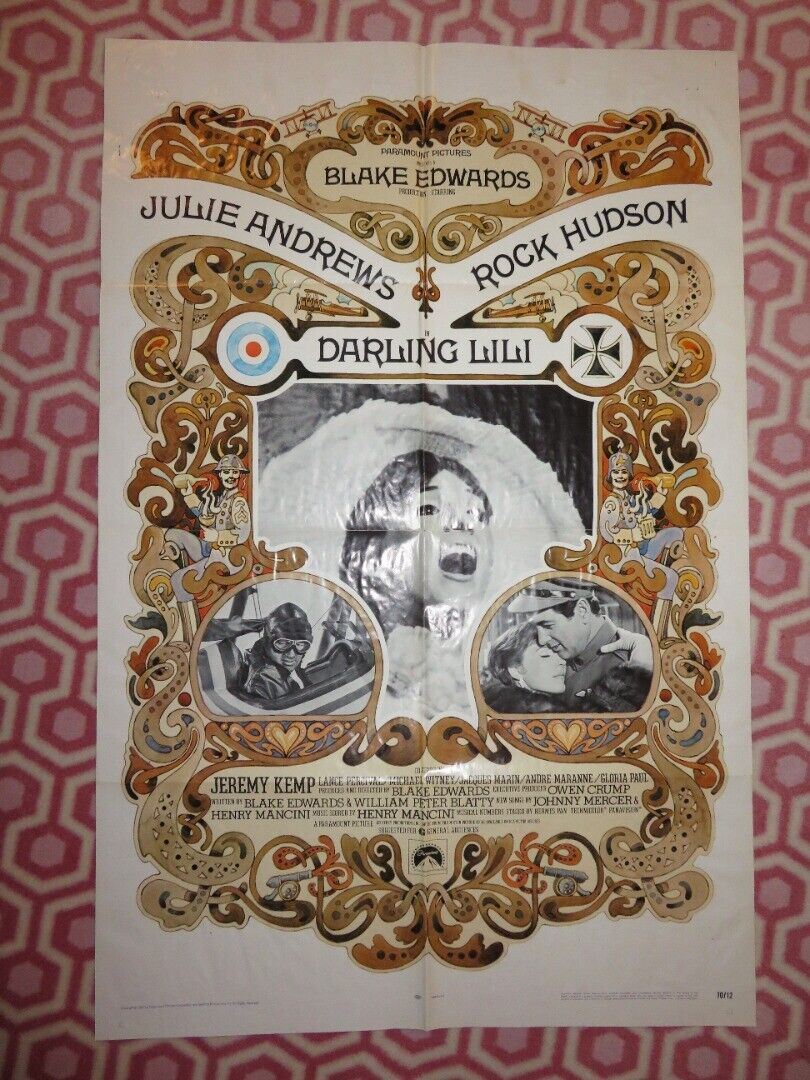 PARAMOUNT PICTURES
PRESENTS A
BLAKE EDWARDS
PRODUCTION STARRING
JULIE ANDREWS
ROCK HUDSON
in
DARLING LILI
JEREMY KEMP LANCE PERCIVAL/MICHAEL WITNEY/JACQUES MARIN/ANDRE MARANNE/GLORIA PAUL
PRODUCED AND DIRECTED BY BLAKE EDWARDS EXECUTIVE PRODUCER OWEN CRUMP
WRITTEN BY BLAKE EDWARDS & WILLIAM PETER BLATTY NEW SONGS BY JOHNNY MERCER &
HENRY MANCINI MUSIC SCORED BY HENRY MANCINI MUSICAL NUMBERS STAGED BY HERMES PAN TECHNICOLOR® PANAVISION®
A PARAMOUNT PICTURE
SUGGESTED FOR G GENERAL AUDIENCES
70/12